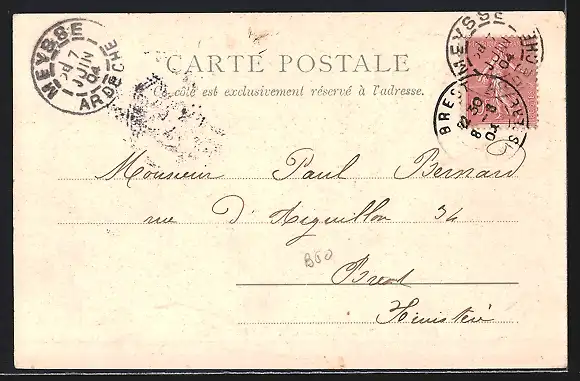 MEYSSE
7
JUIN
04
ARDECHE
CARTE POSTALE
Ce côté est exclusivement réservé à l'adresse.
MEYSSE
04
BREST
8
04
Monsieur Paul Bernard
rue D'Aiguillon 34
B50
Brest
Finistère